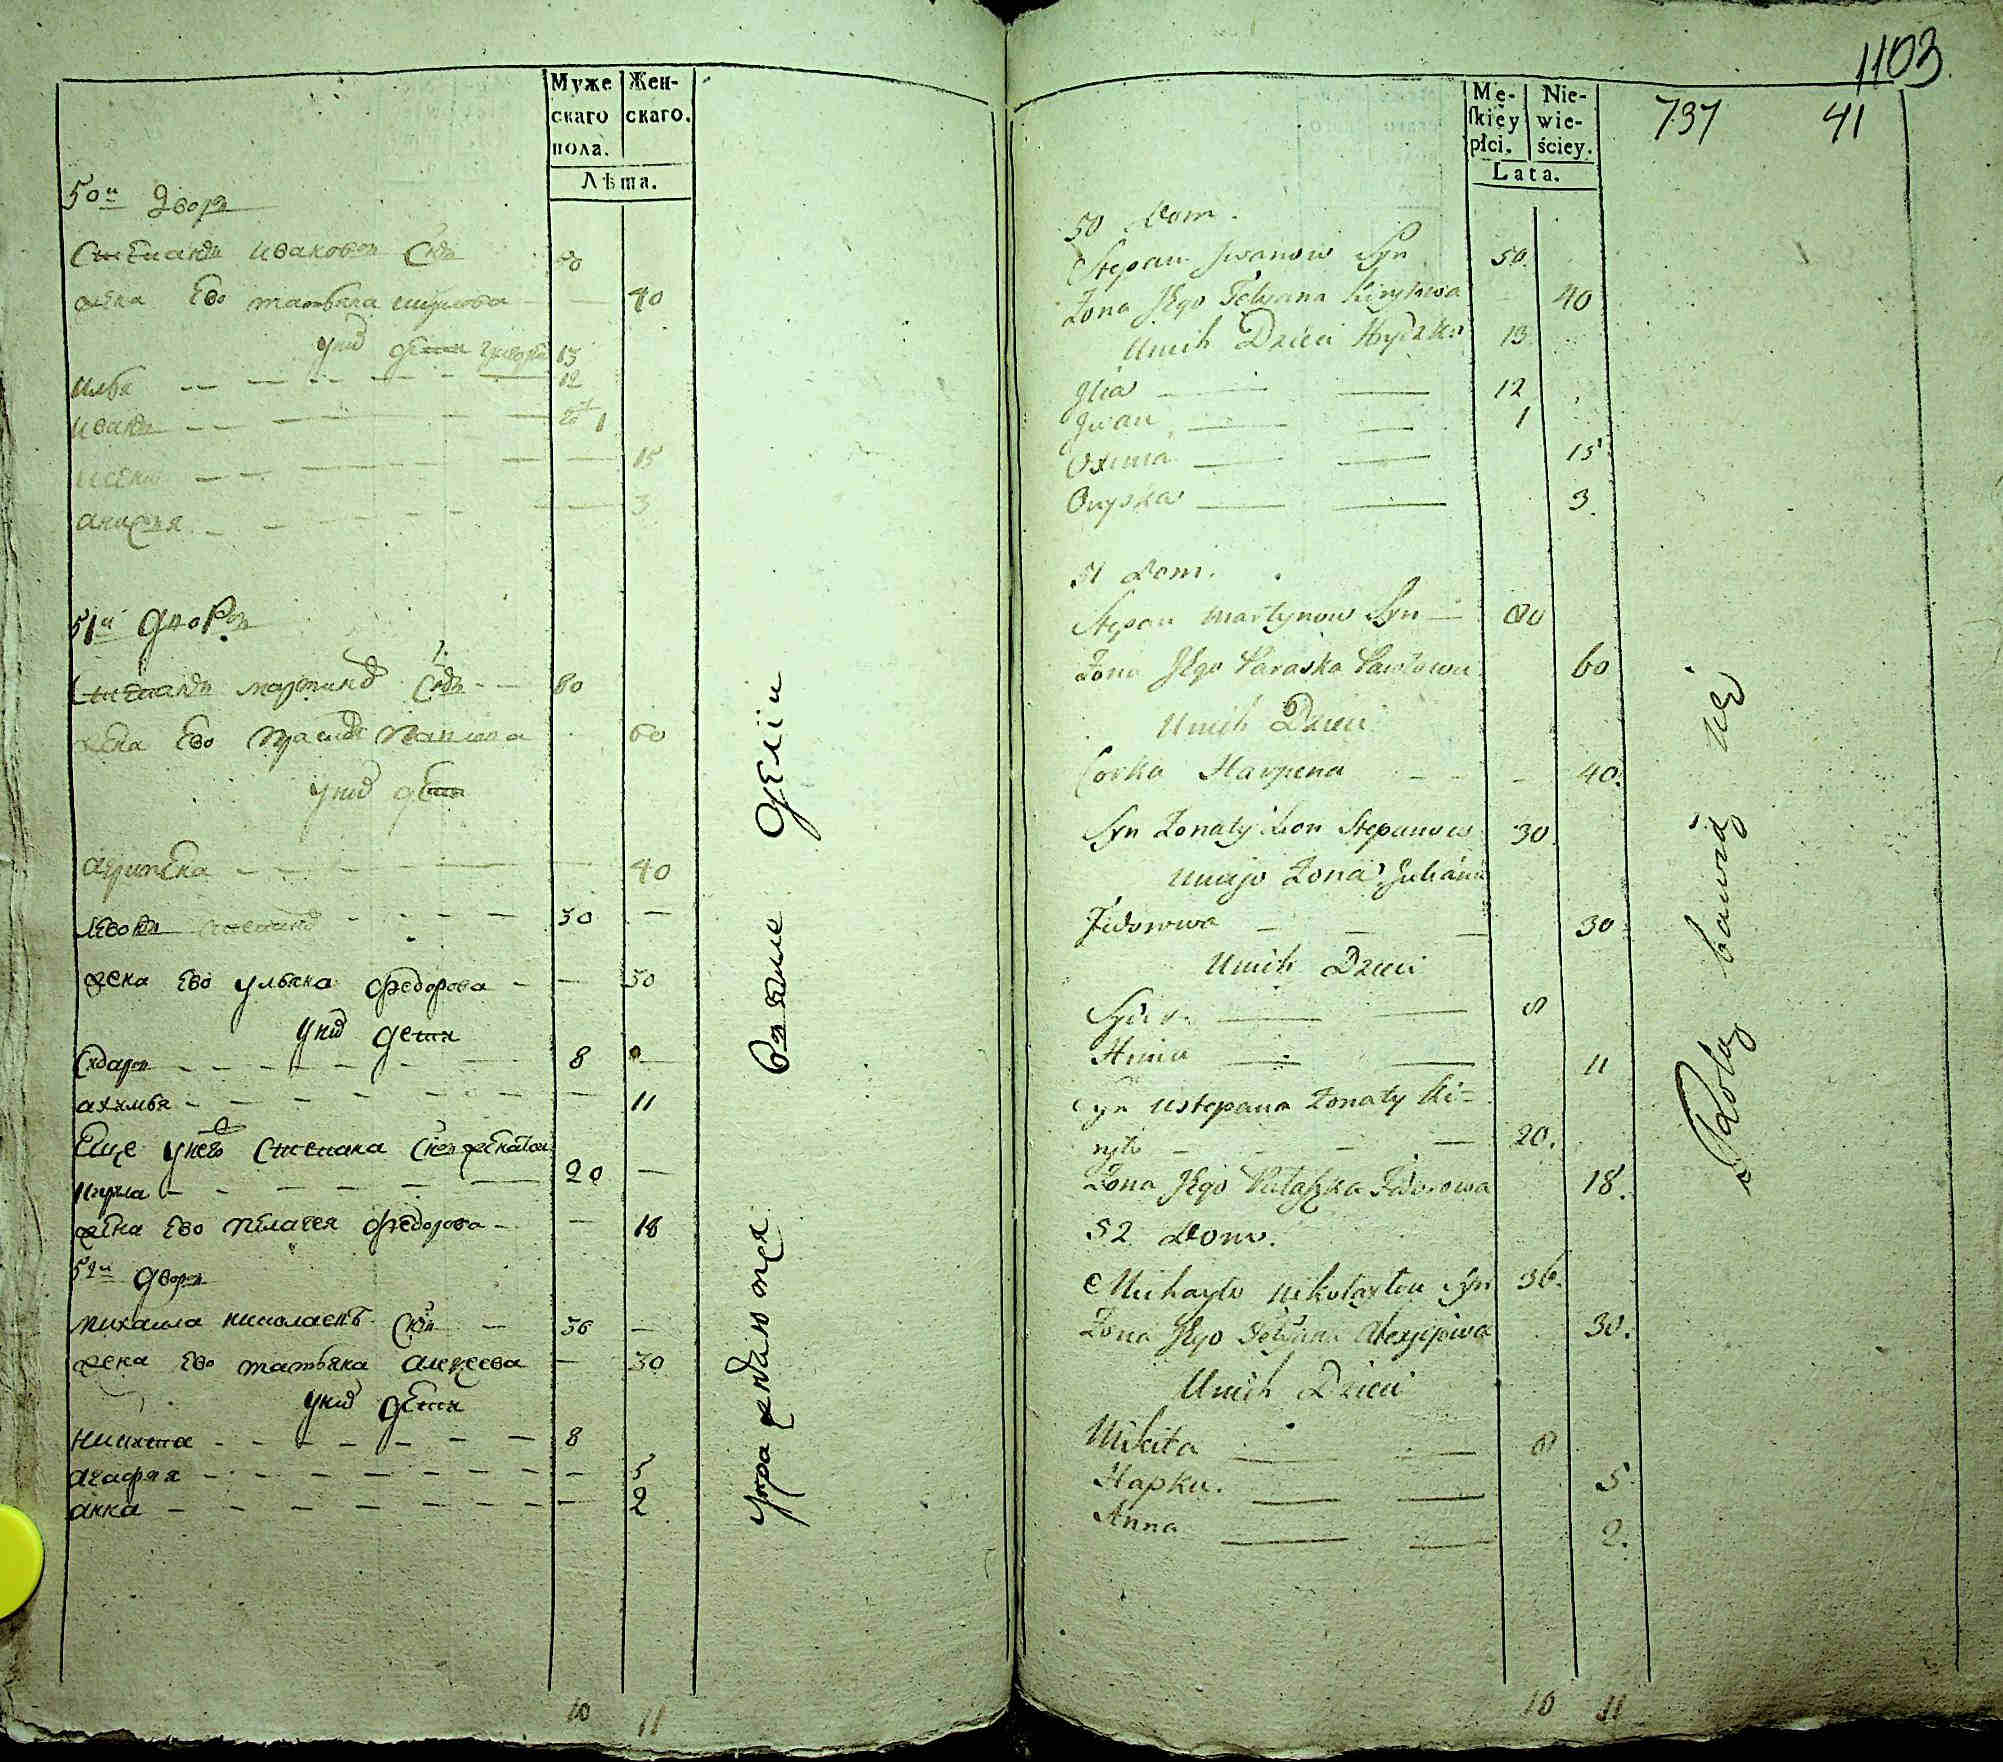 Муже
скаго
пола.
Жен-
скаго.
Лѣта.
50й Дворъ
Степанъ Ивановъ Снъ 50
жена Ево татьяна кирилова — 40
у нихъ дети григорей 13
илья — — — 12
иванъ — — — 1
— — — 15
анисья — — — 3
51й дворъ
Степанъ мартиновъ Снъ — 80
жена Ево 60
у нихъ дети
агрипена — — — 40
левонъ степановъ — — — 30 —
жена Ево ульяна федорова — — 30
у нихъ дети
Сидаръ — — — 8 —
акилина — — — 11
Еще у него Степана Снъ женатой
кирила — — — 20 —
жена Ево пелагея федорова — — 18
52й дворъ
михаила николаевъ Снъ — 36 —
жена Ево татьяна алексеева — 30
у нихъ дети
никита — — — 8
агафия — — — 5
анна — — — 2
10 11
упражняются въ земле делии
1103
737 41
Mę-
skiéy
płci.
Nie-
wie-
ściey.
Lata.
50 Dom.
Stepan Jwanow Syn 50.
Zona Jego Tetyana Kiryłowa 40
Unich Dzieci Hryszko 13
Jlia — — 12
Jwan — — 1
Oxinia — — 15
Onyska — — 3.
51 Dom.
Stepan Martynow Syn — 80
Zona Jego Paraska Pawłowa 60
Unich Dzieci
Corka Harpena — — — 40.
Syn Zonaty Leon Stepanow 30.
Uniejo Zona Juliana
Fidorowa — — — 30.
Unich Dzieci
Sydor — — 8
— — 11
Syn Ustepana Zonaty Ki-
ryło — — — 20.
Zona Jego Pałaszka Fidorowa 18.
52 Dom.
Michayło Nikołajew Syn 36.
Zona Jego Tetyana Alexyjewa 30.
Unich Dzieci
Mikita — — 8
Hapka. — — 5
Anna — — 2.
10 11
Rolą bawią się